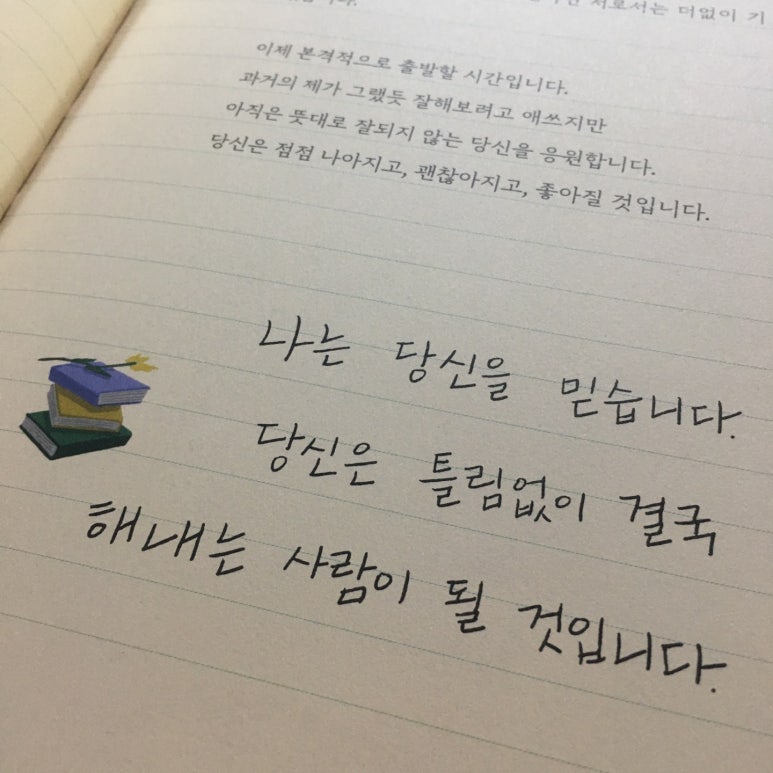 저로서는 더없이 기
이제 본격적으로 출발할 시간입니다.
과거의 제가 그랬듯 잘해보려고 애쓰지만
아직은 뜻대로 잘되지 않는 당신을 응원합니다.
당신은 점점 나아지고, 괜찮아지고, 좋아질 것입니다.
나는 당신을 믿습니다.
당신은 틀림없이 결국
해내는 사람이 될 것입니다.